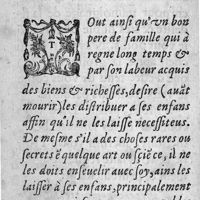 TOut ainsi qu'vn bon
pere de famille qui à
regne long temps &
par son labeur acquis
des biens & richesses, desire (auāt
mourir) les distribuer a ses enfans
affin qu'il ne les laisse necessiteus.
De mesme s'il a des choses rares ou
secrets ē quelque art ou sciēce, il ne
les doits enseuelir auec soy, ains les
laisser à ses enfans, principalement